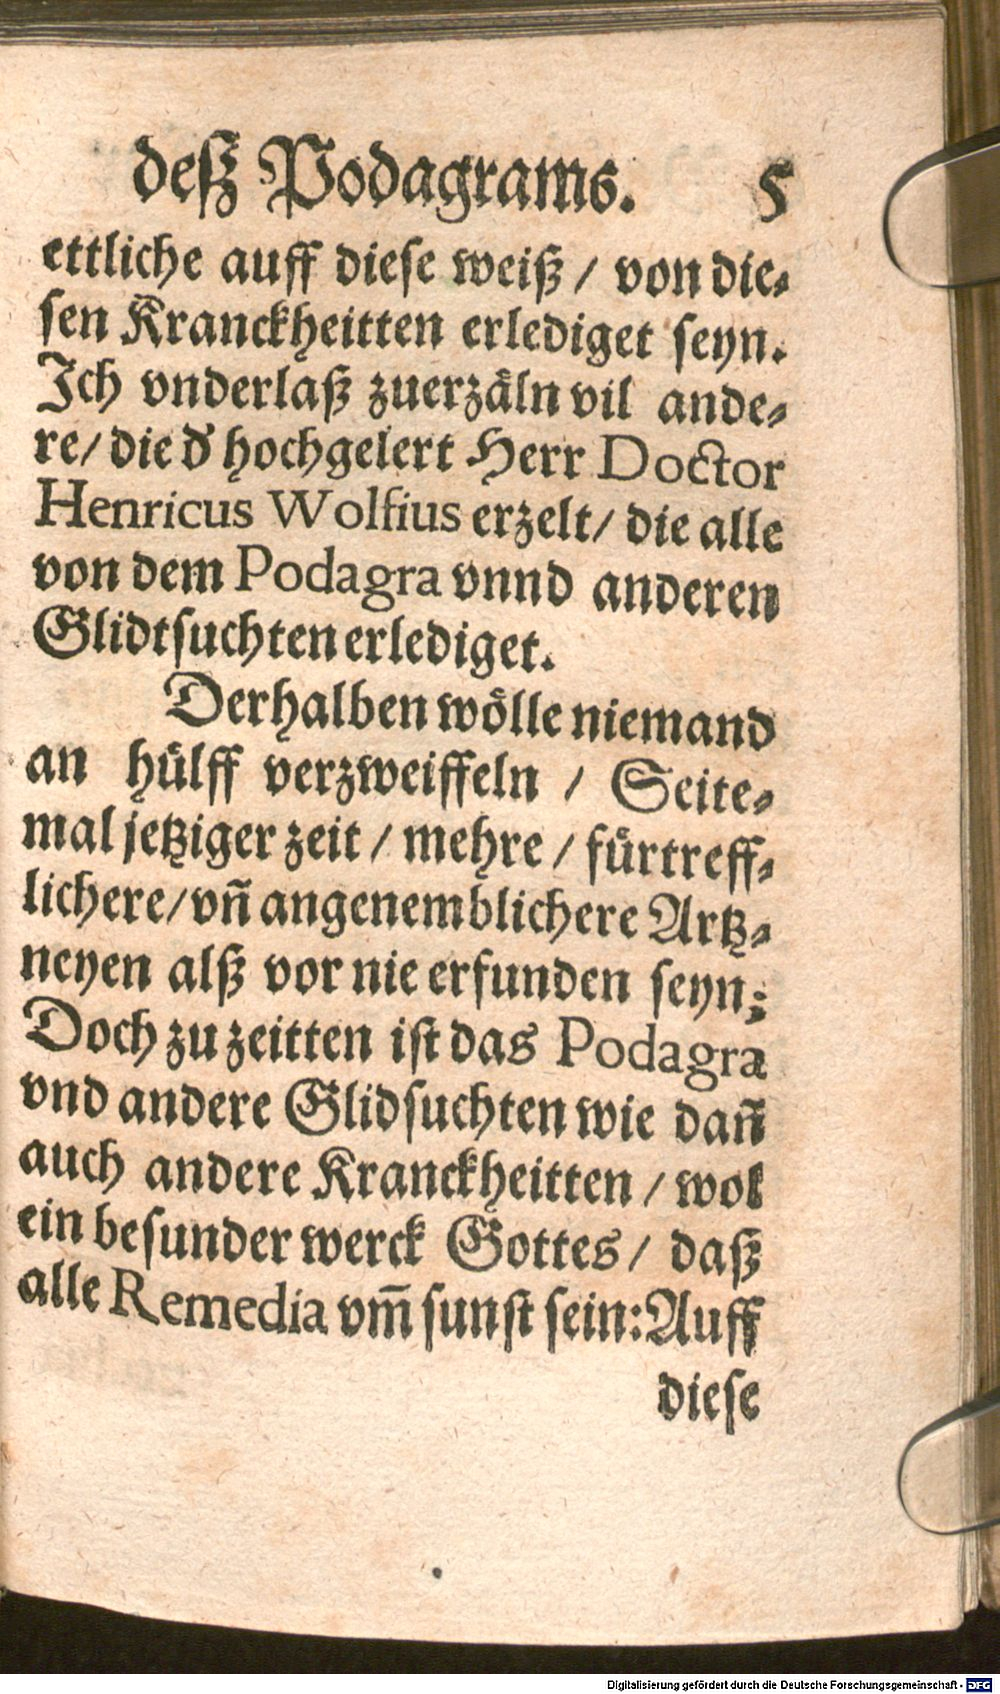 deß Podagrams. 5
ettliche auff diese weiß / von die-
sen Kranckheitten erlediget seyn.
Ich vnderlaß zuerzåln vil ande-
re / die d' hochgelert Herr Doctor
Henricus Wolfius erzelt / die alle
von dem Podagra vnnd anderen
Glidtsuchten erlediget.
Derhalben wölle niemand
an hülff verzweiffeln / Seite-
mal jetziger zeit / mehre / fürtreff-
lichere / vñ angenemblichere Artz-
neyen alß vor nie erfunden seyn:
Doch zu zeitten ist das Podagra
vnd andere Glidsuchten wie dañ
auch andere Kranckheitten / wol
ein besunder werck Gottes / daß
alle Remedia vm̄ sunst sein: Auff
diese
Digitalisierung gefördert durch die Deutsche Forschungsgemeinschaft - DFG